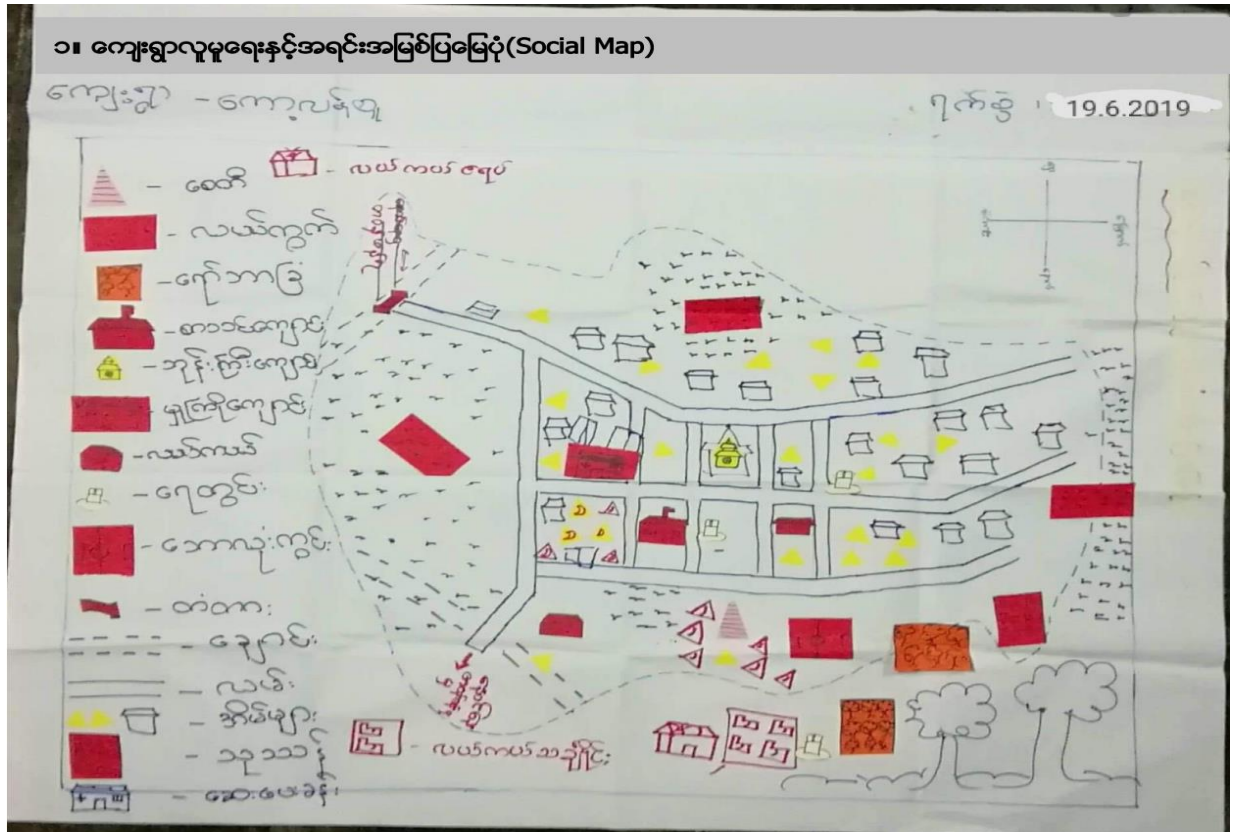 ၁။ ကျေးရွာလူမူရေးနှင့်အရင်းအမြစ်ပြမြေပုံ(Social Map)
ကျေးရွာ - ကော့လန်ဗျူ
ရက်စွဲ 19.6.2019
- စေတီ
- လယ်ကယ်ဇရပ်
- လယ်ကွက်
- ရော်ဘာခြံ
- စာသင်ကျောင်း
- ဘုန်းကြီးကျောင်း
- မူကြိုကျောင်း
- ရေတွင်း
- ဘောလုံးကွင်း
- တံတား
- ချောင်း
- လမ်း
- အိမ်များ
- သုဿာန်
- ဆေးပေးခန်း
- လယ်ကယ်သချိုင်း
D
D
D